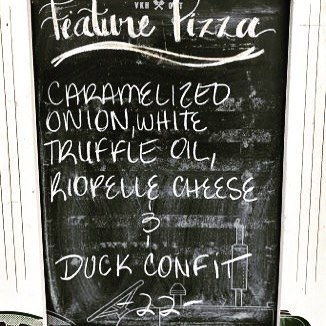 VKH OTT
Feature Pizza
CARAMELIZED
ONION, WHITE
TRUFFLE OIL,
RIOPELLE CHEESE
&
DUCK CONFIT
22-